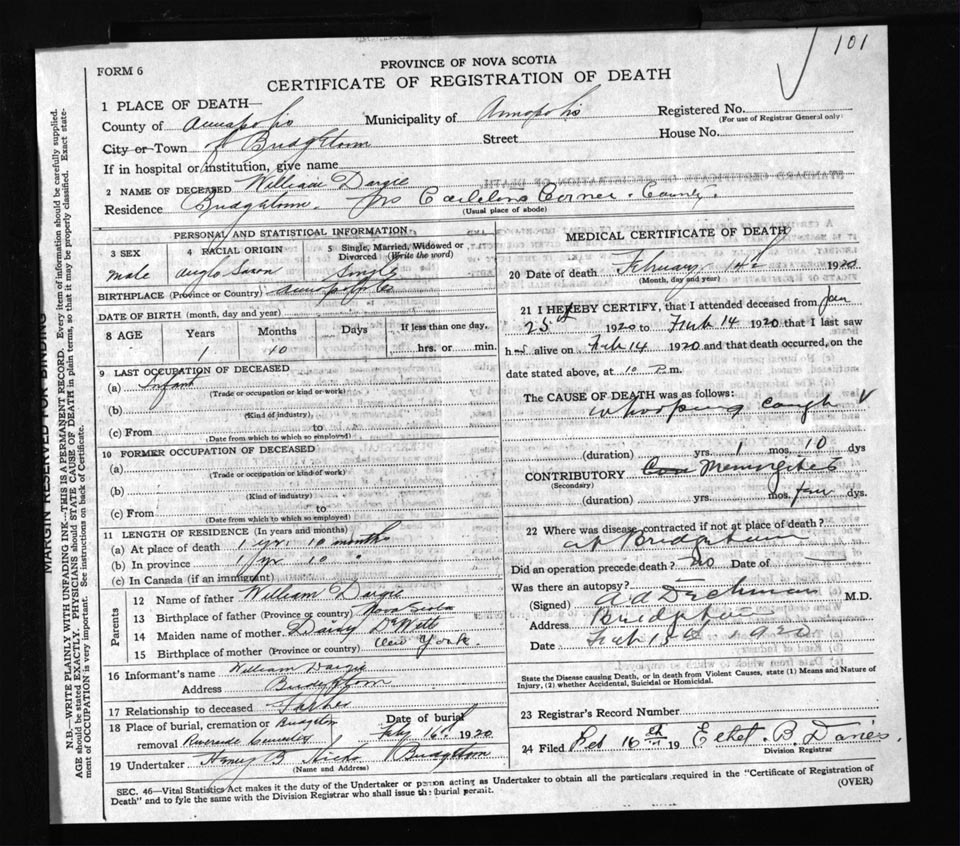 101
FORM 6
PROVINCE OF NOVA SCOTIA
CERTIFICATE OF REGISTRATION OF DEATH
1 PLACE OF DEATH—
County of Annapolis Municipality of Annapolis Registered No.
(For use of Registrar General only)
City or Town of Bridgetown Street House No.
If in hospital or institution, give name
2 NAME OF DECEASED William Dargie
Residence Bridgetown. Corner. County.
(Usual place of abode)
PERSONAL AND STATISTICAL INFORMATION
3 SEX 4 RACIAL ORIGIN 5 Single, Married, Widowed or Divorced (Write the word)
male Anglo Saxon Single
BIRTHPLACE (Province or Country) Annapolis Co
DATE OF BIRTH (month, day and year)
8 AGE Years Months Days If less than one day,
1 10 hrs. or min.
9 LAST OCCUPATION OF DECEASED
(a) Infant
(Trade or occupation or kind or work)
(b)
(Kind of industry)
(c) From to
(Date from which to which so employed)
10 FORMER OCCUPATION OF DECEASED
(a)
(Trade or occupation or kind of work)
(b)
(Kind of industry)
(c) From to
(Date from which to which so employed)
11 LENGTH OF RESIDENCE (In years and months)
(a) At place of death 1 yr. 10 months
(b) In province 1 yr 10 "
(c) In Canada (if an immigrant)
Parents
12 Name of father William Dargie
13 Birthplace of father (Province or country) Nova Scotia
14 Maiden name of mother Daisy DeWitt
15 Birthplace of mother (Province or country) New York.
16 Informant's name William Dargie
Address Bridgetown
17 Relationship to deceased Father
18 Place of burial, cremation or removal Bridgetown Riverside Cemetery Date of burial Feby 16th 1920
19 Undertaker Henry B Hicks Bridgetown
(Name and Address)
MEDICAL CERTIFICATE OF DEATH
20 Date of death February 14th 1920
(Month, day and year)
21 I HEREBY CERTIFY, that I attended deceased from Jan
25th 1920 to Feb 14 1920 that I last saw
h alive on Feb 14 1920 and that death occurred, on the
date stated above, at 10 P.m.
The CAUSE OF DEATH was as follows:
Whooping Cough
(duration) yrs. 1 mos. 10 dys
CONTRIBUTORY Meningitis
(Secondary)
(duration) yrs. mos. few dys.
22 Where was disease contracted if not at place of death?
at Bridgetown
Did an operation precede death? no Date of
Was there an autopsy?
(Signed) A A Dechman M.D.
Address Bridgetown
Date Feb 15th 1920
State the Disease causing Death, or in death from Violent Causes, state (1) Means and Nature of
Injury, (2) whether Accidental, Suicidal or Homicidal.
23 Registrar's Record Number
24 Filed Feb 16th 19 Ethel. B. Davies.
Division Registrar
SEC. 46—Vital Statistics Act makes it the duty of the Undertaker or person acting as Undertaker to obtain all the particulars required in the "Certificate of Registration of
Death" and to fyle the same with the Division Registrar who shall issue the burial permit.
(OVER)
MARGIN RESERVED FOR BINDING
N.B.—WRITE PLAINLY WITH UNFADING INK—THIS IS A PERMANENT RECORD. Every item of information should be carefully supplied.
AGE should be stated EXACTLY. PHYSICIANS should STATE CAUSE OF DEATH in plain terms, so that it may be properly classified. Exact state-
ment of OCCUPATION is very important. See instructions on back of Certificate.